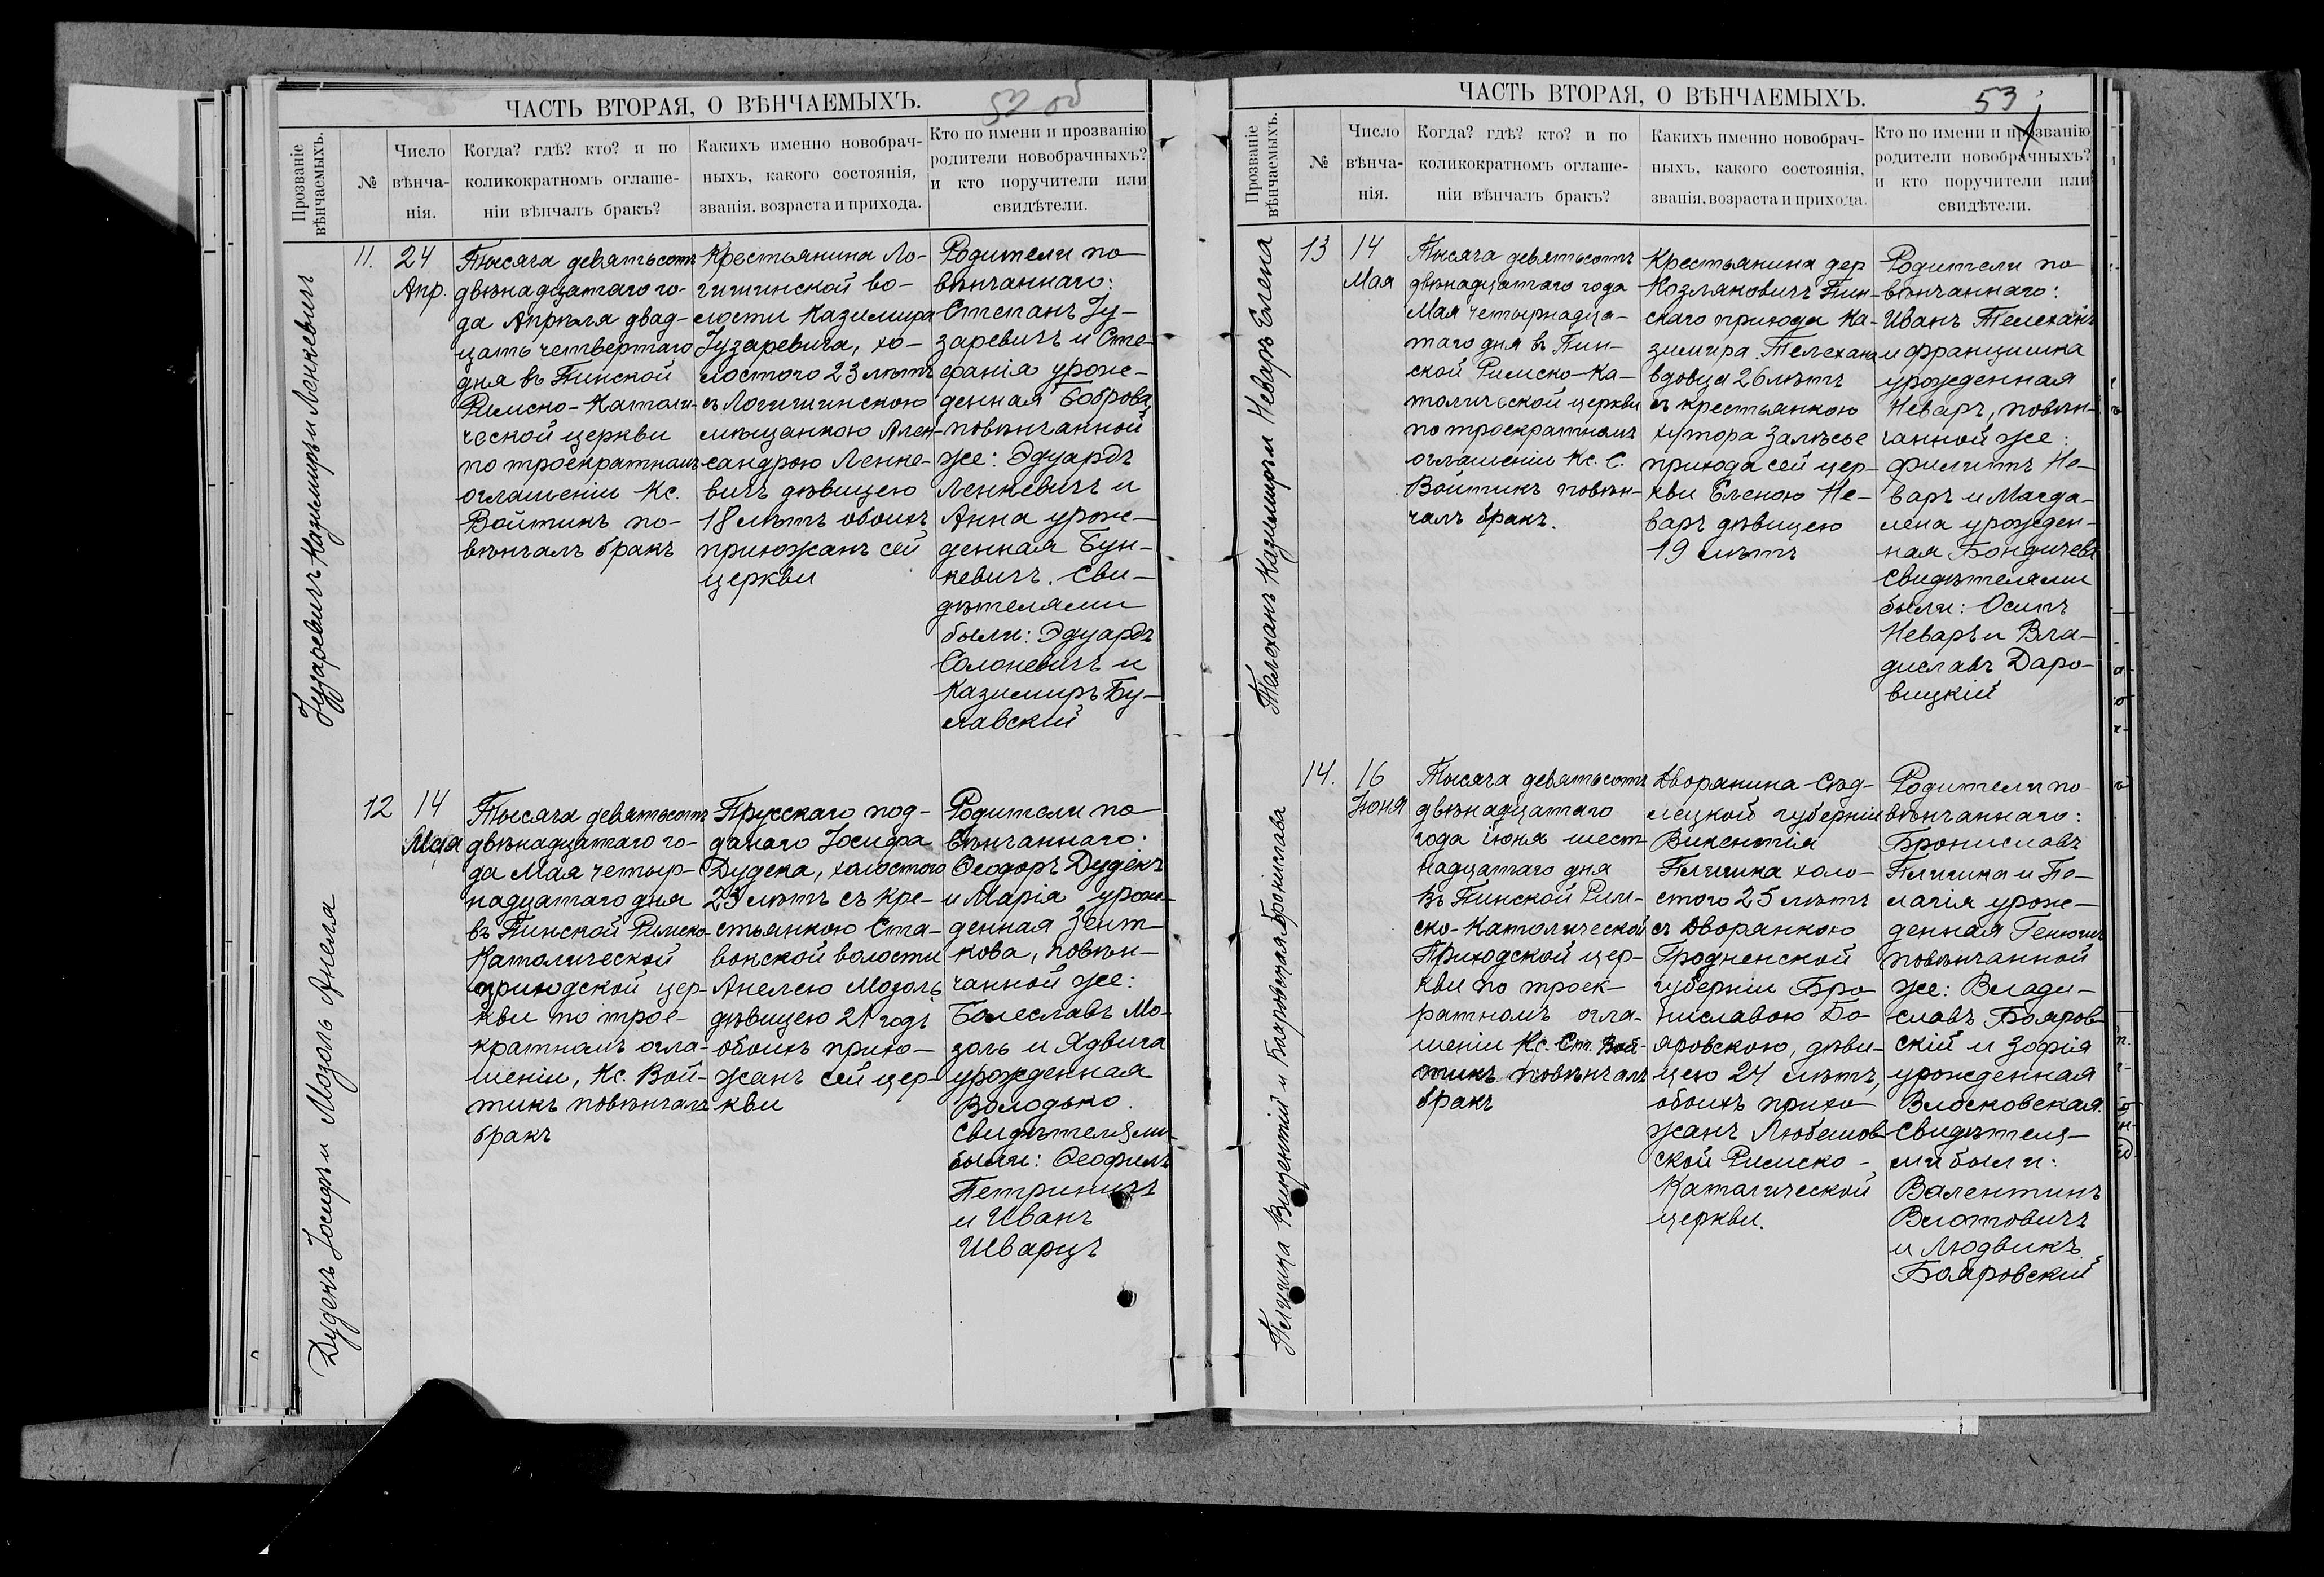 ЧАСТЬ ВТОРАЯ, О ВѢНЧАЕМЫХЪ.
52 об
Прозваніе
вѣнчаемыхъ.
№
Число
вѣнча-
нія.
Когда? гдѣ? кто? и по
коликократномъ оглаше-
ніи вѣнчалъ бракъ?
Какихъ именно новобрач-
ныхъ, какого состоянія,
званія, возраста и прихода.
Кто по имени и прозванію
родители новобрачныхъ?
и кто поручители или
свидѣтели.
Гузаревичъ Казимиръ и Ленкевичъ
11.
24
Апр.
Тысяча девятьсотъ
двѣнадцатаго го-
да Апрѣля двад-
цать четвертаго
дня въ Пинской
Римско-Католи-
ческой церкви
по троекратномъ
оглашеніи Кс.
Войтикъ по-
вѣнчалъ бракъ
Крестьянина Ло-
гишинской во-
лости Казимира
Гузаревича, хо-
лостого 23 лѣтъ
съ Логишинскою
мѣщанкою Алек-
сандрою Ленке-
вичъ дѣвицею
18 лѣтъ обоихъ
прихожанъ сей
церкви
Родители по-
вѣнчаннаго:
Степанъ Гу-
заревичъ и Сте-
фанія урож-
денная Боброва,
повѣнчанной
же: Эдуардъ
Ленкевичъ и
Анна урож-
денная Бун-
кевичъ. Сви-
дѣтелями
были: Эдуардъ
Солоневичъ и
Казимиръ Бу-
славскій
Дудекъ Іосифъ и Мозоль Анеля
12
14
Мая
Тысяча девятьсотъ
двѣнадцатаго го-
да Мая четыр-
надцатаго дня
въ Пинской Римско-
Католической
приходской цер-
кви по трое-
кратномъ огла-
шеніи, Кс. Вой-
тикъ повѣнчалъ
бракъ
Прусскаго под-
данаго Іосифа
Дудека, холостого
23 лѣтъ съ кре-
стьянкою Ста-
вокской волости
Анелею Мозоль,
дѣвицею 21 годъ
обоихъ прихо-
жанъ сей цер-
кви
Родители по-
вѣнчаннаго:
Ѳеодоръ Дудекъ
и Марія урож-
денная Зент-
кова, повѣн-
чанной же:
Болеславъ Мо-
золь и Ядвига
урожденная
Володько.
Свидѣтелями
были: Ѳеофилъ
Петриничъ
и Иванъ
Шварцъ
ЧАСТЬ ВТОРАЯ, О ВѢНЧАЕМЫХЪ.
53
Прозваніе
вѣнчаемыхъ.
№
Число
вѣнча-
нія.
Когда? гдѣ? кто? и по
коликократномъ оглаше-
ніи вѣнчалъ бракъ?
Какихъ именно новобрач-
ныхъ, какого состоянія,
званія, возраста и прихода.
Кто по имени и прозванію
родители новобрачныхъ?
и кто поручители или
свидѣтели.
Телеханъ Казимиръ и Неваръ Елена
13
14
Мая
Тысяча девятьсотъ
двѣнадцатаго года
Мая четырнадца-
таго дня въ Пин-
ской Римско-Ка-
толической церкви
по троекратномъ
оглашеніи Кс. С.
Войтикъ повѣн-
чалъ бракъ.
Крестьянина дер
Козляковичъ Пин-
скаго прихода Ка-
зимира Телехана
вдовца 26 лѣтъ
съ крестьянкою
хутора Залѣсье
прихода сей цер-
кви Еленою Не-
варъ дѣвицею
19 лѣтъ
Родители по-
вѣнчаннаго:
Иванъ Телеханъ
и Францишка
урожденная
Неваръ, повѣн-
чанной же:
Филиппъ Не-
варъ и Магда-
лена урожден-
ная Бондичева
Свидѣтелями
были: Осипъ
Неваръ и Вла-
диславъ Даро-
вицкій
Пличика Викентій и Бояровская Бронислава
14.
16
Іюня
Тысяча девятьсотъ
двѣнадцатаго
года Іюня шест-
надцатаго дня
въ Пинской Рим-
ско-Католической
Приходской цер-
кви по троек-
ратномъ огла-
шеніи Кс. Ст. Вой-
тикъ повѣнчалъ
бракъ
Дворянина Сѣд-
лецкой губерніи
Викентія
Пличика холо-
стого 25 лѣтъ
съ дворянкою
Гродненской
губерніи Бро-
ниславою Бо-
яровскою, дѣви-
цею 24 лѣтъ,
обоихъ прихо-
жанъ Любешов-
ской Римско-
Католической
церкви.
Родители по-
вѣнчаннаго:
Брониславъ
Пличика и Пе-
лагія урож-
денная
повѣнчанной
же: Влади-
славъ Бояров-
скій и Зофія
урожденная
Влосковская.
Свидѣтеля-
ми были:
Валентинъ
Влатовичъ
и Людвикъ
Бояровскій